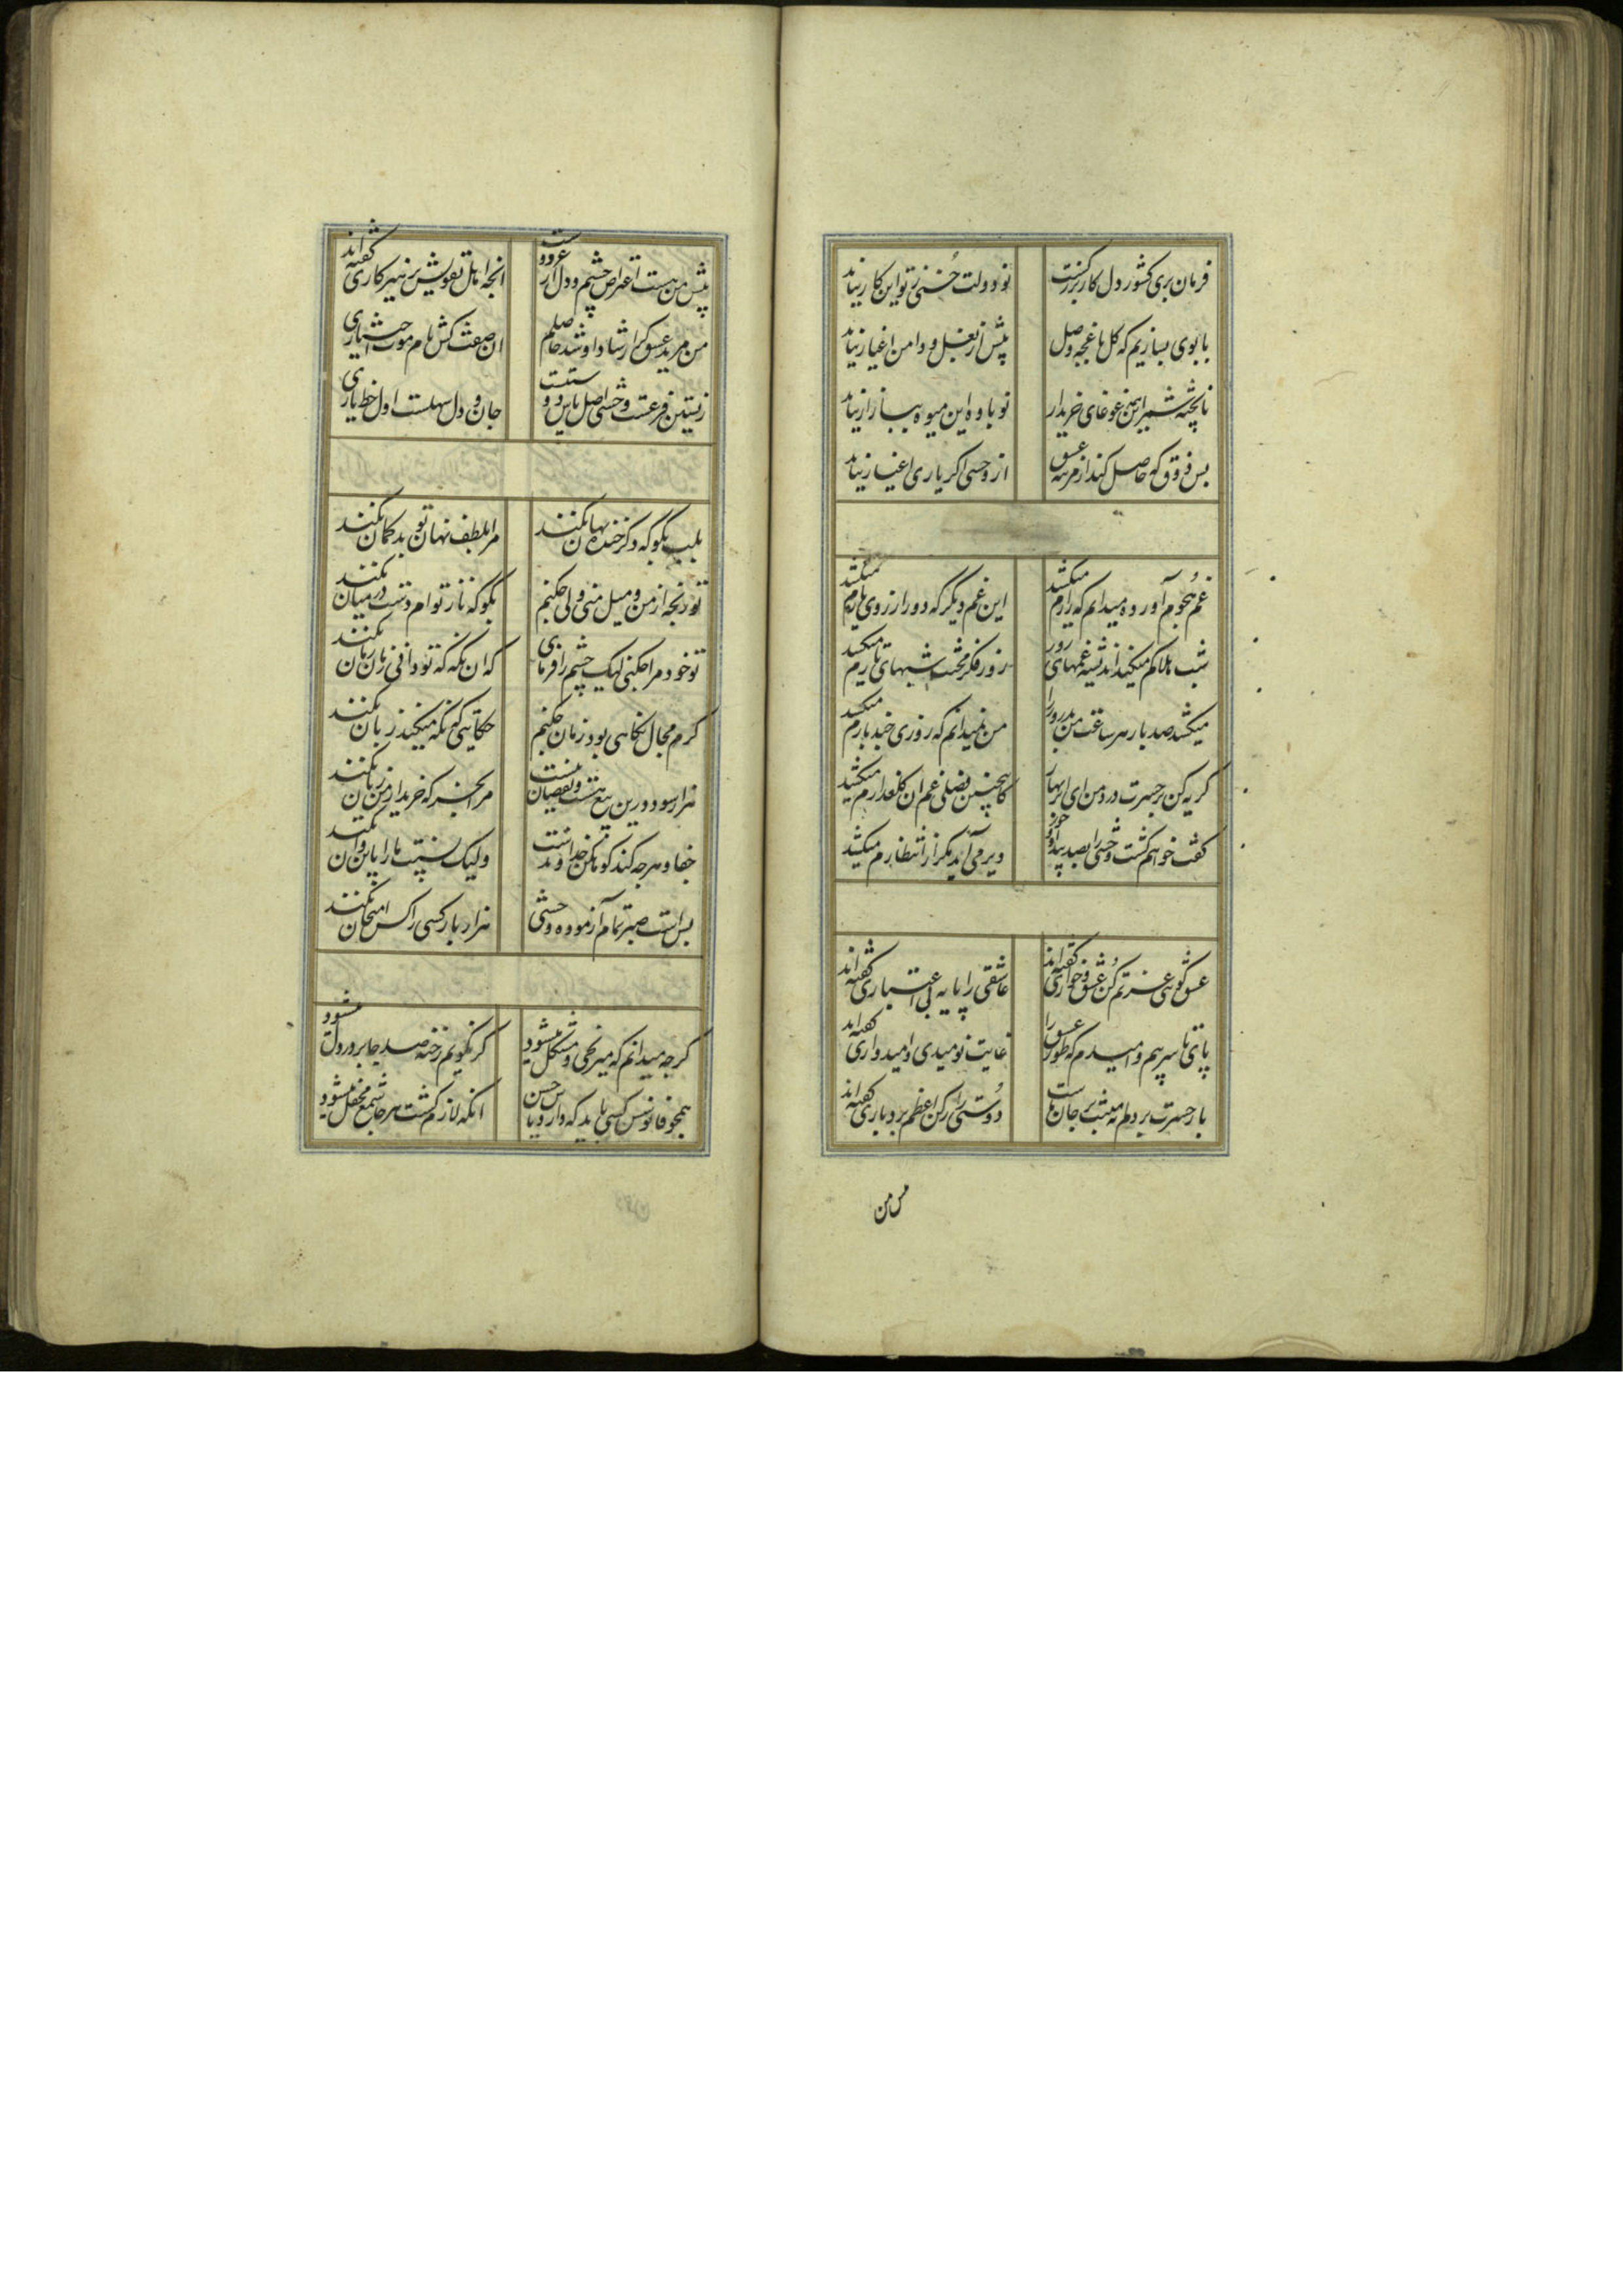 فرمان بری کشور دل کار بزرگست نو دولت حسنی ز تو این کار نیاید
با بوی بسازیم که گل با غنچه وصل پیش از بغل و دامن اغیار نیاید
ناپخته ثمر این همه غوغای خریدار نوباوه این میوه ببازار نیاید
بس ذوق که حاصل کند از مرتبه عشق از وحشی اگر یاری اغیار نیاید
غم هجوم آورده میدانم که زارم میکشد این غم دیگر که دور از روی یارم میکشد
شب هلاکم میکند اندیشه غمهای روز روز فکر محنت شبهای تارم میکشد
میکشد صد بار هر ساعت من بدروز را من نمیدانم که روزی چند بارم میکشد
گریه کن بر حسرت و درد من ای ابر بهار کاینچنین فصلی غم آن گلعذارم میکشد
گفت خواهم کشت وحشی را بصد بیداد زود دیر می آید مگر از انتظارم میکشد
عشق گو بی عزتم کن عشق و خواری گفته اند عاشقی را پایه بی اعتباری گفته اند
پای تا سر بیم و امیدم که طور عشق را غایت نومیدی و امیدواری گفته اند
بار حسرت بر دلم نه منت بر جان ماست دوستی را رکن اعظم بردباری گفته اند
پیش من
پیش من هست اعتراض چشم و دل از عز و رو ست آنچه اهل تقویش پرهیزکاری گفته اند
من مرید عشق گر ارشاد او شد حاصلم آن صفت کش نام موت اختیاری
زیستن فرعست وحشی اصل پاس دوستیست جان و دل سهلست اول حفظ یاری
بلب بگوی که دگر خنده نهان نکند مرا بلطف نهان تو بدگمان نکند
تو رنجه از من و میل منی ولی چکنم بگو که ناز توام دست در میان نکند
تو خود مرا چکنی لیک چشم را فرمای که آن نگه که تو دانی زمان زمان نکند
گرم مجال نگاهی بود زمان چکنم حکایتی که نگه میکند زبان نکند
هزار سود درین بیع هست و نقصان نیست مرا بخر که خریدار من زیان نکند
جفا و هر چه کند گو بمکن خداوندست ولیک نسبت ما را باین و آن نکند
بس است صبر تمام آزموده وحشی هزار بار کسی را کس امتحان نکند
گرچه میدانم که میرنجی و مشکل میشود گر نگویم رخنه صد جا بر در دل میشود
همچو فانوس کسی باید که دارد پاس حسن آنکه لازم گشت هر جا شمع محفل میشود